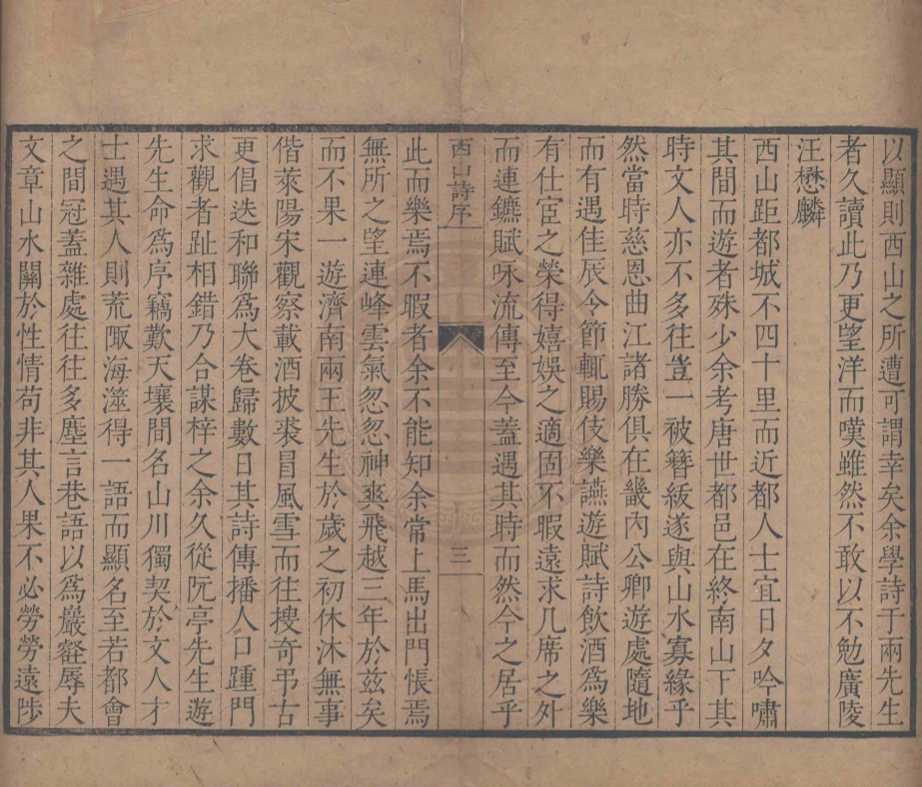 以顯則西山之所遭可謂幸矣余學詩于兩先生
者久讀此乃更望洋而嘆雖然不敢以不勉廣陵
汪懋麟
西山距都城不四十里而近都人士宜日夕吟嘯
其間而遊者殊少余考唐世都邑在終南山下其
時文人亦不多往豈一被簪紱遂與山水寡緣乎
然當時慈恩曲江諸勝俱在畿內公卿遊處隨地
而有遇佳辰令節輒賜伎樂讌遊賦詩飲酒為樂
有仕宦之榮得嬉娛之適固不暇遠求几席之外
而連鑣賦咏流傳至今蓋遇其時而然今之居乎
西山詩序 三
此而樂焉不暇者余不能知余常上馬出門悵焉
無所之望連峰雲氣忽忽神爽飛越三年於茲矣
而不果一遊濟南兩王先生於歲之初休沐無事
偕萊陽宋觀察載酒披裘冒風雪而往搜奇弔古
更倡迭和聯為大卷歸數日其詩傳播人口踵門
求觀者趾相錯乃合謀梓之余久從阮亭先生遊
先生命為序竊歎天壤間名山川獨契於文人才
士遇其人則荒陬海澨得一語而顯名至若都會
之間冠蓋雜處往往多塵言巷語以為巖壑辱夫
文章山水關於性情苟非其人果不必勞勞遠陟